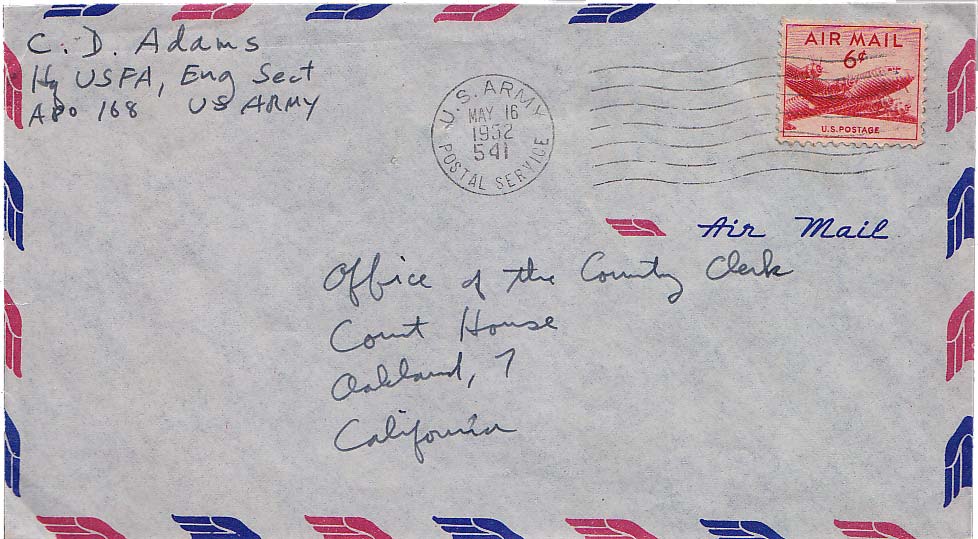 C. D. Adams
Hq USFA, Eng Sect
APO 168 US ARMY
U.S. ARMY
MAY 16
1952
541
POSTAL SERVICE
AIR MAIL
6¢
U.S. POSTAGE
Air Mail
Office of the County Clerk
Court House
Oakland, 7
California